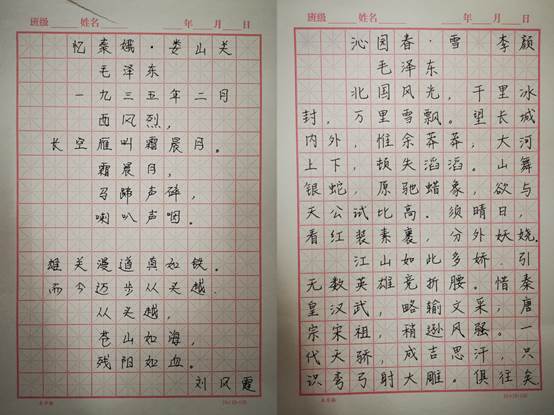 班级 姓名 年 月 日
忆秦娥·娄山关
毛泽东
一九三五年二月
西风烈，
长空雁叫霜晨月。
霜晨月，
马蹄声碎，
喇叭声咽。
雄关漫道真如铁。
而今迈步从头越。
从头越，
苍山如海，
残阳如血。
刘风霞
班级 姓名 年 月 日
沁园春·雪 李颜
毛泽东
北国风光，千里冰
封，万里雪飘。望长城
内外，惟余莽莽，大河
上下，顿失滔滔。山舞
银蛇，原驰蜡象，欲与
天公试比高。须晴日，
看红装素裹，分外妖娆。
江山如此多娇，引
无数英雄竞折腰。惜秦
皇汉武，略输文采，唐
宗宋祖，稍逊风骚。一
代天骄，成吉思汗，只
识弯弓射大雕。俱往矣